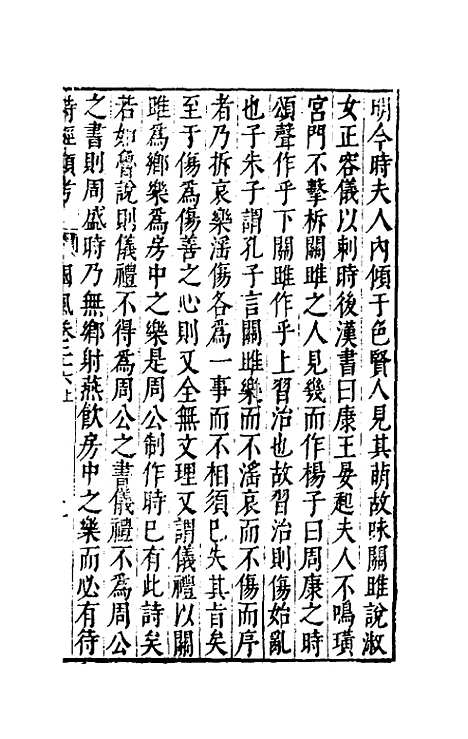 明今時夫人內傾于色賢人見其萌故咏關雎說淑
女正容儀以刺時後漢書曰康王晏起夫人不鳴璜
宮門不擊柝關雎之人見幾而作楊子曰周康之時
頌聲作乎下關雎作乎上習治也故習治則傷始亂
也子朱子謂孔子言關雎樂而不滛哀而不傷而序
者乃拆哀樂滛傷各為一事而不相須已失其旨矣
至于傷為傷善之心則又全無文理又謂儀禮以關
雎為鄉樂為房中之樂是周公制作時已有此詩矣
若如魯說則儀禮不得為周公之書儀禮不為周公
之書則周盛時乃無鄉射燕飲房中之樂而必有待
詩經類考 國風卷之六上